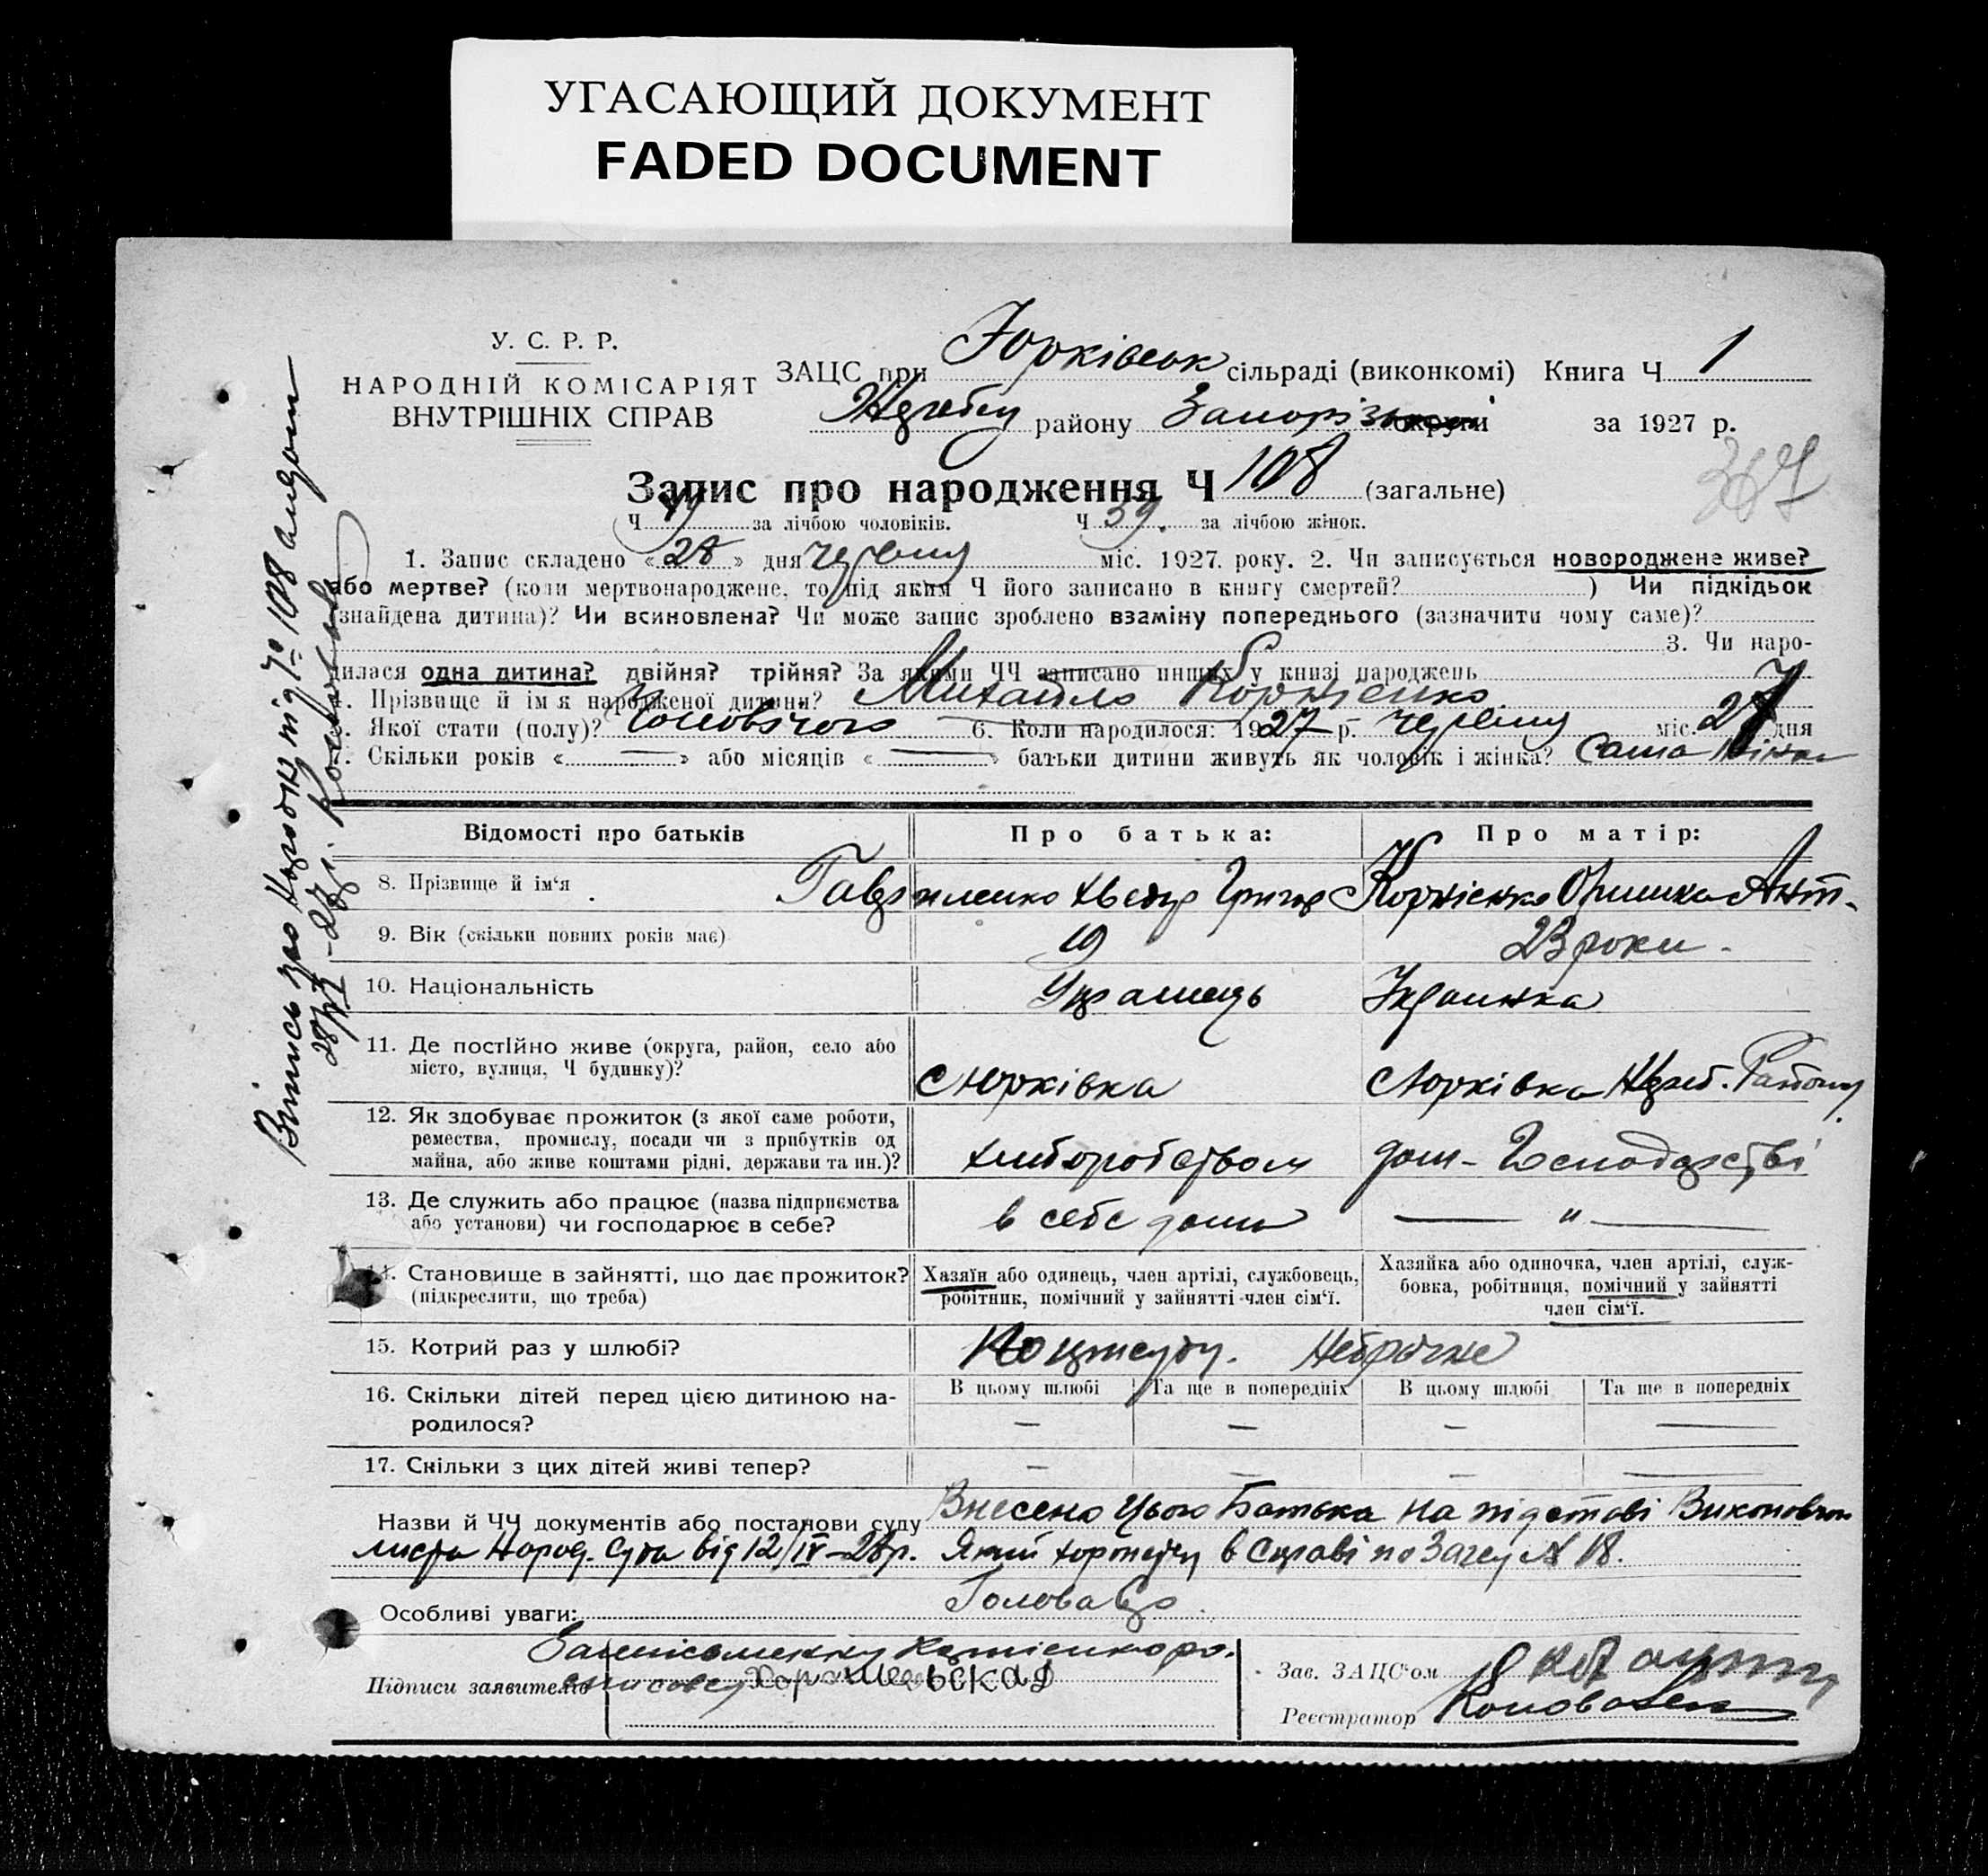 УГАСАЮЩИЙ ДОКУМЕНТ
FADED DOCUMENT
У. С. Р. Р.
НАРОДНІЙ КОМІСАРІЯТ
ВНУТРІШНІХ СПРАВ
ЗАЦС при Юрківськ сільраді (виконкомі) Книга Ч 1
району Запорізької округи за 1927 р.
367
Запис про народження Ч 108 (загальне)
Ч за лічбою чоловіків. Ч 39. за лічбою жінок.
1. Запис складено «28» дня червня міс. 1927. року. 2. Чи записується новороджене живе?
або мертве? (коли мертвонароджене, то під яким Ч його записано в книгу смертей? ) Чи підкідьок
(знайдена дитина)? Чи всиновлена? Чи може запис зроблено взаміну попереднього (зазначити чому саме)?
3. Чи наро-
дилася одна дитина? двійня? трійня? За якими ЧЧ записано инших у книзі народжень
4. Прізвище й ім'я народженої дитини? Михайло Корнієнко
5. Якої стати (полу)? Чоловічого 6. Коли народилося: 1927 р. червня міс. 27 дня
7. Скільки років « — » або місяців « — » батьки дитини живуть як чоловік і жінка? Сама
Відомості про батьків Про батька: Про матір:
8. Прізвище й ім‘я Гавриленко Хведір Григор Корнієнко Оришка Ант.
9. Вік (скільки повних років має) 19 23 роки.
10. Національність Українець Українка
11. Де постійно живе (округа, район, село або
місто, вулиця, Ч будинку)? с Юрківка с Юрківка Жереб. Району
12. Як здобуває прожиток (з якої саме роботи,
ремества, промислу, посади чи з прибутків од
майна, або живе коштами рідні, держави та ин.)? хліборобством дом- Господарстві
13. Де служить або працює (назва підприємства
або установи) чи господарює в себе? в себе дома — " —
14. Становище в зайнятті, що дає прожиток?
(підкреслити, що треба)
Хазяїн або одинець, член артілі, службовець,
робітник, помічний у зайнятті член сім‘ї.
Хазяйка або одиночка, член артілі, служ-
бовка, робітниця, помічний у зайнятті
член сім‘ї.
15. Котрий раз у шлюбі? Небрачне
16. Скільки дітей перед цією дитиною на-
родилося?
В цьому шлюбі Та ще в попередніх В цьому шлюбі Та ще в попередніх
— — — —
17. Скільки з цих дітей живі тепер? — — — —
Назви й ЧЧ документів або постанови суду Внесено цього Батька на підставі Виконавчого
листа Народ. Суда від 12/IV-28р. Який в справі по Загсу № 18.
Особливі уваги: Голова
Підписи заявителів
Зав. ЗАЦС‘ом
Реєстратор Коновален
Випись про Народж під № 108
28/VI-27 р. Коновален